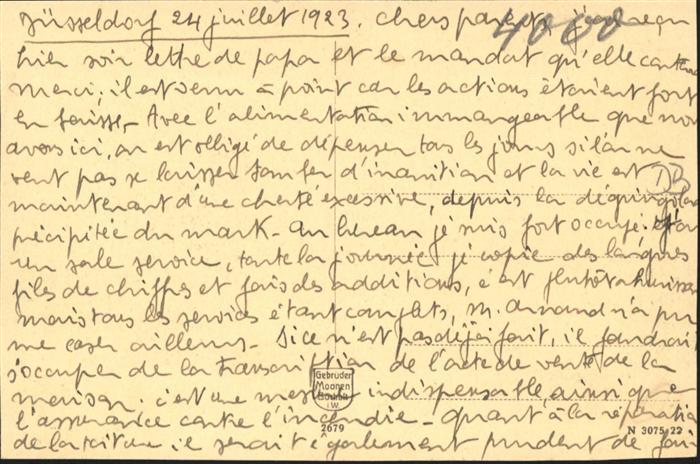 Düsseldorf 24 juillet 1923. Chers parents, j'ai reçu
4000
hier soir lettre de papa et le mandat qu'elle conten
merci; il est venu à point car les actions étaient fort
en baisse. Avec l'alimentation immangeable que nous
avons ici, on est obligé de dépenser tous les jours si l'on ne
veut pas se laisser tomber d'inanition et la vie est
DB
maintenant d'une cherté excessive, depuis la dégringolade
précipitée du mark. Au bureau je suis fort occupé. J'ai
un sale service, toute la journée je copie des longues
files de chiffres et fais des additions, c'est plutôt ahurissant
mais tous les services étant complets, M. Arnaud n'a pu
me caser ailleurs. Si ce n'est pas déjà fait, il faudrait
s'occuper de la transcription de l'acte de vente de la
maison. c'est une mesure indispensable ainsi que
l'assurance contre l'incendie. Quant à la réparation
de la toiture il serait également prudent de fai
Gebrüder
Moonen
Bocholt
i.W.
2679
N 3075 22